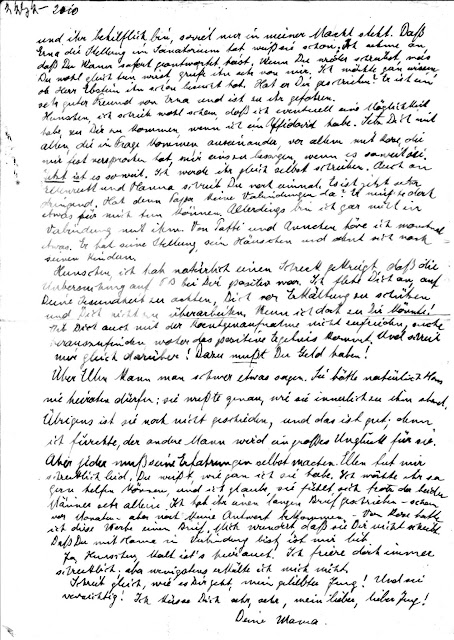 und ihr behilflich bin, soviel nur in meiner Macht steht. Daß
Erna die Stellung im Sanatorium hat weißt sie schon. Ich nehme an,
daß Du Mama sofort geantwortet hast. Wenn Du wieder schreibst, was
Du wohl gleich tun wirst grüße ihn sehr von mir. Ich möchte gern wissen
ob Herr ihr schon besucht hat. Hat er Dir geschrieben? Er ist ein
sehr guter Freund von Erna und ist zu ihr gefahren.
Hunschen, ich schrieb wohl schon, daß ich eventuell eine Möglichkeit
habe, zu Dir zu kommen, wenn ich ein Affidavit habe. Setz Dich mit
allen, die in Frage kommen auseinander, vor allem mit die
mir fest versprochen hat, mir eines zu besorgen, wenn es soweit sei.
Jetzt ist es so weit. Ich werde ihr gleich selbst schreiben. Auch an
und Hanna schreib Du noch einmal. Es ist jetzt sehr
dringend. Hat denn Pappa keine Verbindungen da? Er müßte doch
etwas für mich tun können. Allerdings bin ich gar nicht in
Verbindung mit ihm. Von Patti und Annchen höre ich manchmal
etwas. Er hat seine Stellung, sein Häuschen und sehnt sich nach
seinen Kindern.
Hunschen, ich hab natürlich einen Schreck gekriegt, daß die
Untersuchung auf TB bei Dir positiv war. Ich flehe Dich an, auf
Deine Gesundheit zu achten, Dich vor Erkältung zu schützen
und Dich nicht zu überarbeiten. Wenn ich doch zu Dir könnte!
Gib Dich auch mit der Roentgenaufnahme nicht zufrieden, suche
herauszufinden woher das positive Ergebnis kommt. Und schreib
mir gleich darüber! Dazu mußt Du Geld haben!
Über Ellen kann man schwer etwas sagen. Sie hätte natürlich
nie heiraten dürfen; sie wußte genau, wie sie innerlich zu ihm stand.
Übrigens ist sie noch nicht geschieden, und das ist gut; denn
ich fürchte, der andere Mann wird ein großes Unglück für sie.
Aber jeder muß seine Erfahrungen selbst machen. Ellen tut mir
schrecklich leid. Du weißt, wie gern ich sie habe. Ich möchte ihr so
gern helfen können, und ich glaube sie fühlt sich trotz der beiden
Männer sehr allein. Ich hab ihr einen langen Brief geschrieben – schon
vor Monaten – aber noch keine Antwort bekommen. Von hatte
ich diese Woche einen Brief. Mich wundert daß sie Dir nicht schreibt.
Daß Du mit Mama in Verbindung bist ist mir lieb.
Ja Hunschen kalt ist's hier auch. Ich friere doch immer
schrecklich. aber wenigstens erkälte ich mich nicht.
Schreib gleich, wie es Dir geht, mein geliebter Jung! Und sei
vorsichtig! Ich küsse Dich sehr, sehr, mein lieber, lieber Jung!
Deine Mama.